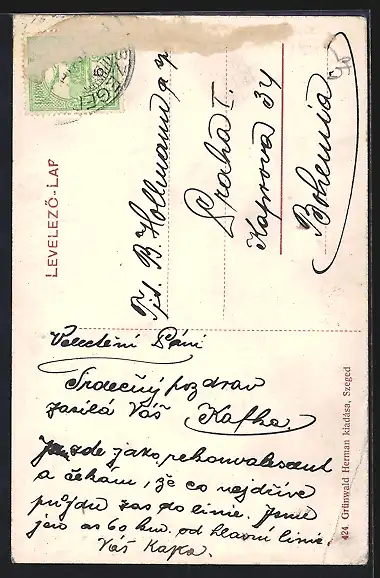 LEVELEZŐ-LAP
SZEGED
Tit. B. Hollmann a sp
Praha I.
Kaprova 34
Bohemia
Velectění Páni
Srdečný pozdrav
zasílá Váš Kafka
Jsem zde jako rekonvalescent
a čekám, že co nejdříve
půjdu zas do linie. Jsme
jen as 60 km. od hlavní linie.
Váš Kafka.
424. Grünwald Herman kiadása, Szeged